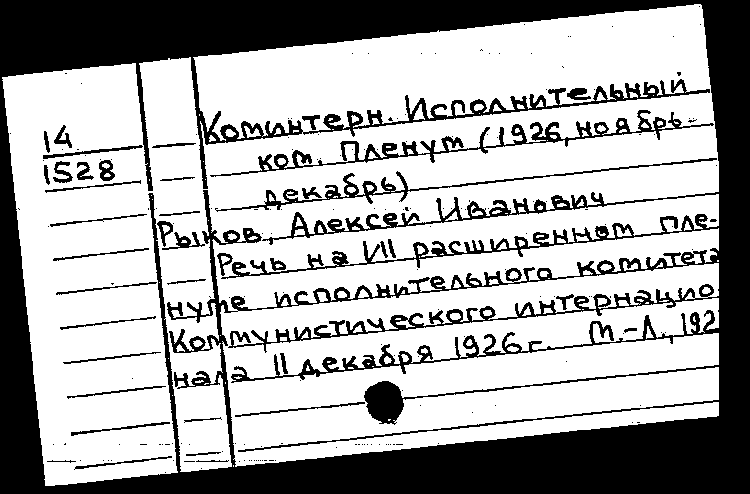 14
1528
Коминтерн. Исполнительный
ком. Пленум (1926, ноябрь-
декабрь)
Рыков, Алексей Иванович
Речь на VII расширенном пле-
нуме исполнительного комитета
Коммунистического интернацио-
нала 11 декабря 1926 г. М.-Л., 192